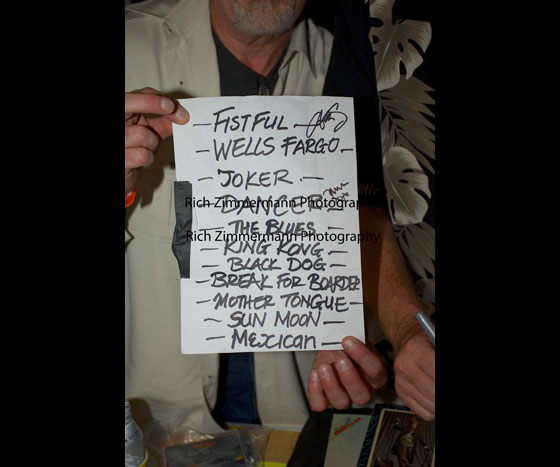 — FISTFUL —
— WELLS FARGO —
— JOKER. —
— DANCER —
Rich Zimmermann Photography
— THE BLUES —
Rich Zimmermann Photography
— KING KONG —
— BLACK DOG —
— BREAK FOR BOARDER
— MOTHER TONGUE —
— SUN MOON —
— MEXICAN —